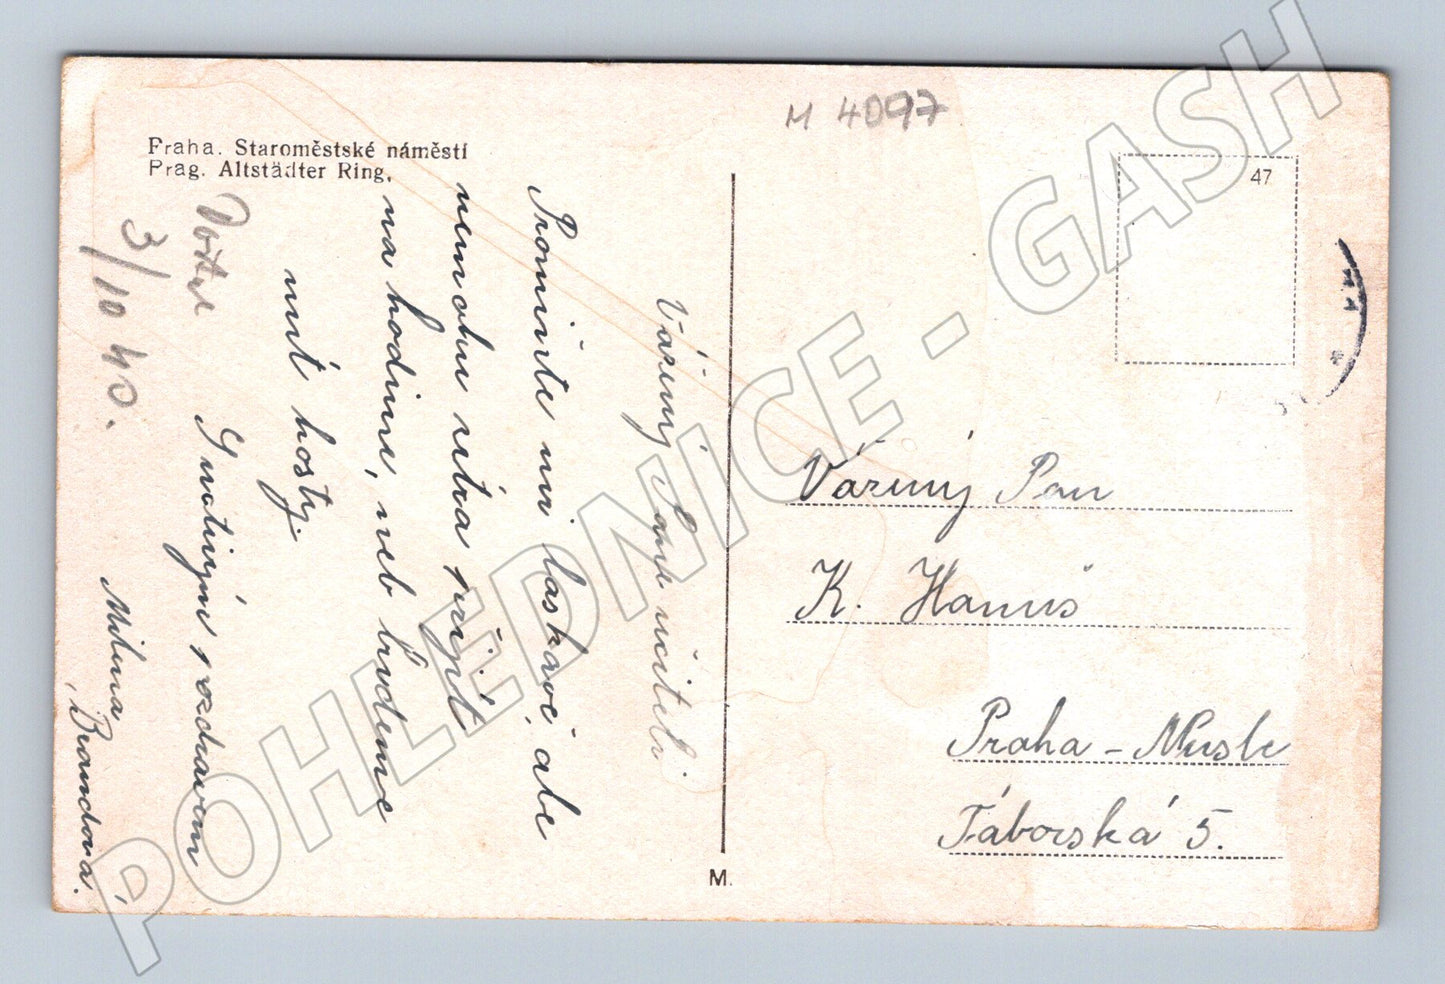 Praha. Staroměstské náměstí
Prag. Altstädter Ring.
M 4097
47
Vážený Pane učiteli
Promiňte mi laskavě, ale
nemohu zítra přijít
na hodinu, neb budeme
mít hosty.
S uctivým pozdravem
Miluna
Brandová.
3/10 40.
Vážený Pan
K. Hanuš
Praha - Nusle
Táborská 5.
M.
POHLEDNICE - GASH